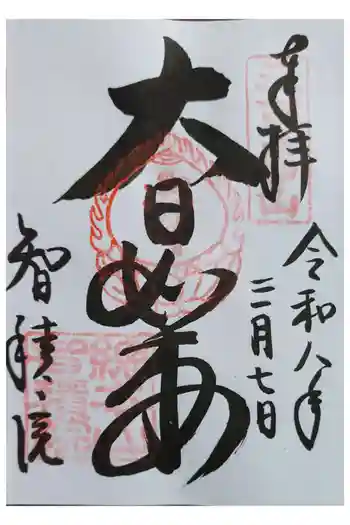 奉拝
令和八年
三月七日
大日如来
智積院